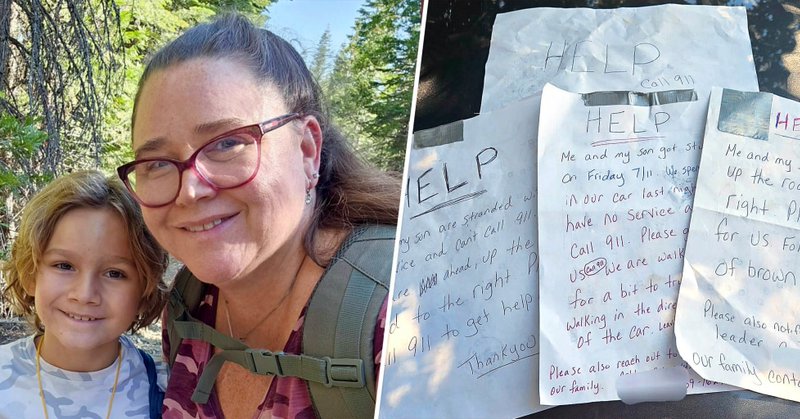 HELP
Call 911
HELP
my son are stranded w
and Can't Call 911.
ahead, up the
to the right
911 to get help
Thankyou
HELP
Me and my son got stu
on Friday 7/11. We spe
in our car last nigh
have no service a
Call 911. Please
us Call 911 We are walk
for a bit to tr
walking in the dire
of the car.
Please also reach out to
our family.
HE
Me and my
up the roa
right. P
for us. Fo
of brown
Please also noti
leader
our family cont